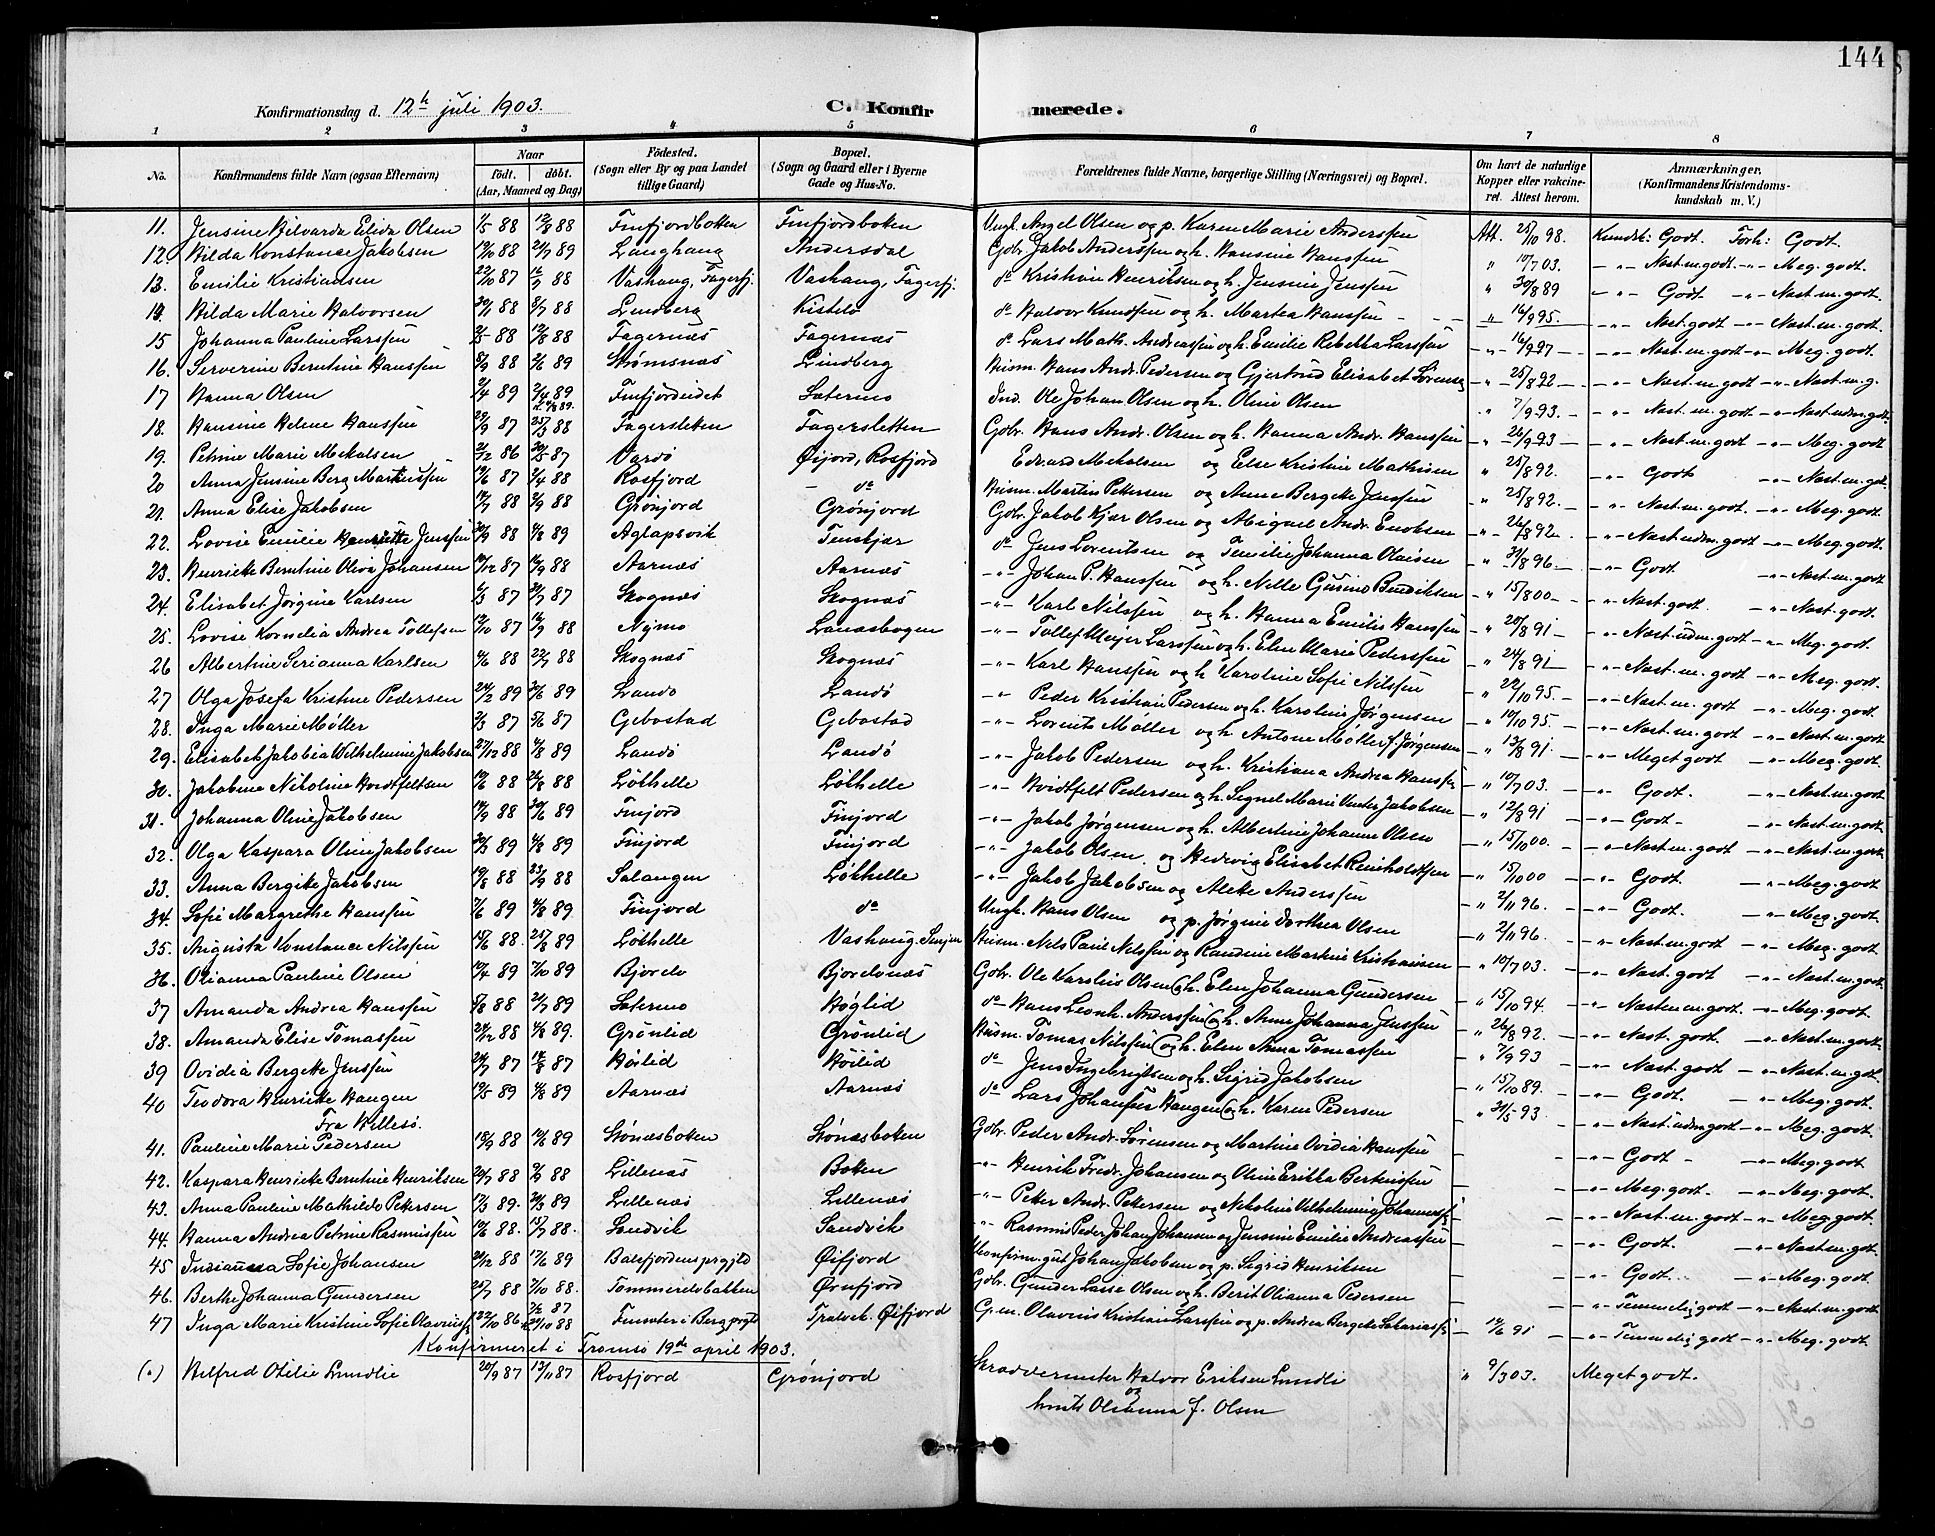 144
Konfirmationsdag d. 12te juli 1903.
C. Konfirmerede.
1 2 3 4 5 6 7 8
No. Konfirmandens fulde Navn (ogsaa Efternavn) Naar født. døbt. (Aar, Maaned og Dag) Födested. (Sogn eller By og paa Landet tillige Gaard) Bopæl. (Sogn og Gaard eller i Byerne Gade og Hus-No. Forældrenes fulde Navne, borgerlige Stilling (Næringsvei) og Bopæl. Om havt de naturlige Kopper eller vakcineret. Attest herom. Anmærkninger. (Konfirmandens Kristendomskundskab m. V.)
11. Jensine Hilvarda Elida Olsen 1/5 88 12/8 88 Finfjordbotten Finfjordboten Ungk. Angel Olsen og p. Karen Marie Anderssen Att. 25/10 98. Kundsk: Godt. Forh: Godt.
12. Hilda Konstance Jakobsen 88 21/7 89 Langhang Andersdal Gbr. Jakob Anderssen og h. Hansine Hanssen " 10/7 03. -"- Nast.m.godt -"- Meg. godt.
13. Emilie Kristiansen 22/10 87 88 Vashaug, Fagerfj. Vashaug, Fagerfj. do Kristian Henriksen og h. Jensine Jenssen " 30/8 89 -"- Godt -"- Nast.m.godt.
14. Hilda Marie Halvorsen 30/1 88 8/7 88 Lindberg Kistelo do Halvor Knudsen og h. Martea Hanssen " 16/9 95. -"- Nast.godt -"- Nast.m.godt.
15 Johanna Pauline Larssen 88 12/8 88 Fagernæs Fagernæs do Lars Math. Andreassen og h. Emilie Rebekka Larssen " 16/9 97 -"- Nast.m.godt -"- Meg. godt.
16. Serverine Berntine Hanssen 8/9 88 89 Strømsnæs Lindberg Husm. Hans Andr. Pedersen og Gjertrud Elisabet Sørensen " 25/8 92 -"- Nast.m.godt -"- Nast.m.g.
17 Hanna Olsen 2/4 89 2/4 89 Finfjordeidet Saterno Ind. Ole Johan Olsen og h. Oline Olsen " 7/9 93. -"- Nast.m.godt -"- Nast.udm.godt
18. Hansine Helene Hanssen 29/9 87 25/3 88 Fagersletten Fagersletten Gbr. Hans Andr. Olsen og h. Hanna Andr. Hanssen " 26/9 93 -"- Nast.m.godt -"- Meg. godt
19. Petrine Marie Mekalsen 2/12 86 30/5 87 Vardö Øijord, Rosfjord Edvard Mekalsen og Else Kristine Mathisen " 25/8 92. -"- Godt -"- Nast.m.godt.
20 Anna Jensine Berg Markussen 19/6 87 2/4 88 Rosfjord - do Husm. Martin Pettersen og Anne Bergitte Jenssen " 25/8 92. -"- Nast.m.godt. -"- Meg. godt.
21. Anna Elise Jakobsen 14/7 88 2/9 88 Grönjord Grönjord Gbr. Jakob Kjær Olsen og Abigael Andr. Enoksen " 26/8 92 -"- Nast.udm.godt -"- Meg. godt.
22. Lovise Emilie Henriette Jenssen 30/9 88 4/8 89 Aglapsvik Tenskjær do Jens Lorentsen og Temilie Johanna Olaisen " 31/8 96. -"- Godt -"- Nast.m.godt.
23. Henriette Berntine Oliva Johansen 10/12 87 16/9 88 Aarnæs Aarnæs -"- Johan P. Hanssen og h. Nelle Gurine Bendiksen " 15/8 00 -"- Nast.godt. -"- Nast.m.godt.
24. Elisabet Jørgine Karlsen 6/3 87 30/7 87 Skognæs Skognæs -"- Karl Nilssen og h. Hanna Emilie Hanssen " 20/8 91 -"- Nast.udm.godt -"- Meg. godt.
25. Lovise Kornelia Andrea Tollefsen 12/10 87 88 Nymo Lanæsbogen -"- Tollef Meyer Larssen og h. Elen Marie Pederssen " 24/8 91 -"- Nast.m.godt. -"- Meg. godt.
26 Albertine Serianna Karlsen 4/6 88 22/7 88 Skognæs Skognæs -"- Karl Hanssen og h. Karoline Sofie Nilssen " 22/10 95. -"- Nast.m.godt -"- Meg. godt.
27 Olga Josefa Kristine Pedersen 24/2 89 89 Landö Landö -"- Peder Kristian Pedersen og h. Karoline Jørgensen " 19/10 95. -"- Nast.m.godt -"- Nast.m.godt.
28. Inga Marie Møller 2/3 87 5/6 87 Gebostad Gebostad -"- Lorents Møller og h. Antone Møller f. Jørgensen " 13/8 91. -"- Meget godt -"- Meg. godt.
29. Elisabet Jakobia Wilhelmine Jakobsen 27/12 88 4/8 89 Landö Landö -"- Jakob Pedersen og h. Kristiana Andrea Hanssen " 10/7 03. -"- Godt. -"- Nast.m.godt
30. Jakobine Nikoline Hvidtfeltsen 19/6 88 88 Løkhelle Løkhelle -"- Hvidtfelt Pedersen og h. Signel Marie Jakobsen " 12/8 91 -"- Godt- -"- Nast.m.godt.
31. Johanna Oline Jakobsen 14/9 88 89 Finjord Finjord -"- Jakob Jørgensen og h. Albertine Johanne Olsen " 15/10 00. -"- Nast.m.godt -"- Nast.m.godt.
32. Olga Kaspara Oline Jakobsen 30/3 89 89 Finjord Finjord -"- Jakob Olsen og Hedevig Elisabet Reinholdtsen " 15/10 00 -"- Godt. -"- Meg. godt.
33. Anna Bergitte Jakobsen 19/8 88 23/9 88 Salangen Løkhelle -"- Jakob Jakobsen og Aleke Anderssen " 2/11 96. -"- Godt. -"- Meg. godt.
34. Sofie Margrethe Hanssen 7/6 89 4/8 89 Finjord do Ungk. Hans Olsen og p. Jørgine Dorthea Olsen " 2/11 96 -"- Nast.m.godt -"- Meg. godt.
35. Augusta Konstance Nilssen 15/6 88. 25/6 89 Løkhelle Vashaug, Senjen Husm. Nils Parie Nilssen og Randine Martine Kristiansen " 10/7 03. -"- Nast.godt -"- Nast.m.godt.
36. Olianna Pauline Olsen 10/4 89 7/10 89 Bjorelv Bjorelvnæs Gbr. Ole Karolius Olsen og h. Elen Johanna Gundersen " 15/10 94. -"- Nasten m.godt -"- Meg. godt.
37 Amanda Andrea Hanssen 5/8 88 21/7 89 Saterno Høglid do Hans Leonh. Anderssen og h. Anne Johanna Jenssen " 26/8 92. -"- Nast.godt. -"- Nast.m.godt.
38. Amanda Elise Tomassen 24/12 88 4/8 89. Grönlid Grönlid Husm. Tomas Nilssen og h. Elen Anna Tomassen " 7/9 93 -"- Nast.godt -"- Nast.m.godt
39 Ovidia Bergette Jenssen 24/7 87 14/8 87 Höilid Höilid do Jens Ingebrigtsen og h. Sigrid Jakobsen " 15/10 89. -"- Godt. -"- Meg. godt.
40 Teodora Henriette Haugen 19/5 89 4/8 89 Aarnæs Aarnæs do Lars Johanssen Haugen og h. Karen Pedersen " 31/5 93. -"- Nast.udm.godt -"- Meg. godt.
Fra Willesö.
41. Pauline Marie Pedersen 88 89 Stönæsboten Stönæsboten Gbr. Peder Andr. Sørensen og Martine Ovidia Hanssen -"- Godt - -"- Meg. godt
42. Kaspara Henriette Berntine Henriksen 24/7 88 88 Lillenæs Boten -"- Henrik Fredr. Johansen og Oline Erikka Berthinssen -"- Meg. godt. -"- Meg. godt.
43. Anna Pauline Mathilde Pettersen 17/3 89. 89 Lillenæs Lillenæs -"- Petter Andr. Pettersen og Nikoline Vilhelmine Johannesen -"- Nast.m.godt -"- Meg. godt.
44. Hanna Andrea Petrine Rasmussen 19/6 88. 88. Sandvik Sandvik -"- Rasmus Peder Johan Johansen og Jensine Emilie Andreassen -"- Godt. -"- Nast.m.godt.
45 Indianna Sofie Johansen 24/12 88 17/6 89 Balsfjordens prgjld Øifjord Ukonfirm. gut Johan Jakobsen og p. Sigrid Henriksen -"- Godt. -"- Meg. godt.
46. Berthe Johanna Gundersen 25/7 88 7/10 88. Tommerelvbakken Ørnfjord Gbr. Gunder Lasse Olsen og h. Berit Olianna Pedersen -"- Temmelig godt -"- Nast.m.godt.
47 Inga Marie Kristine Sofie Olavius 22/10 86 87 i Berg prgjld Øifjord G.m. Olavius Kristian Larssen og p. Andrea Bergete Sakariassen 91 -"- Temmelig godt -"- Meg. godt.
Konfirmeret i Tromsö 19de april 1903.
Hilfred Otilie Lundlie 20/9 87 13/11 87 Rosfjord Grönjord Skræddermester Halvor Eriksen Lundli " 9/3 03. Meget godt.
og
hustr. Olianna f. Olsen